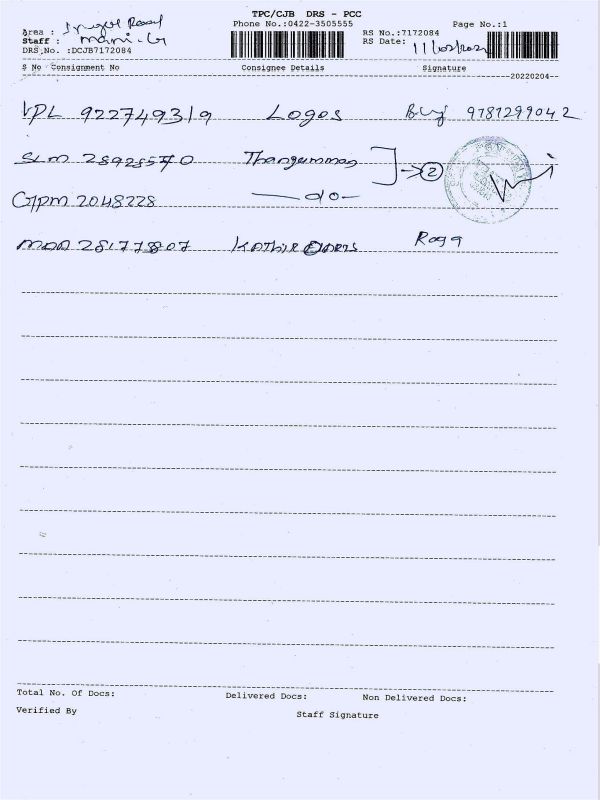 TPC/CJB DRS - PCC
Phone No.:0422-3505555
Page No.:1
Area : Road
Staff : mani.G
DRS No. :DCJB7172084
RS No.:7172084
RS Date:
S No Consignment No Consignee Details Signature
20220204
VPL 922749319 Logos 9787299042
SLM 28928570 Thangammag 2
GPM 2048228 do
MDD 28177807 Roga
Total No. Of Docs: Delivered Docs: Non Delivered Docs:
Verified By Staff Signature